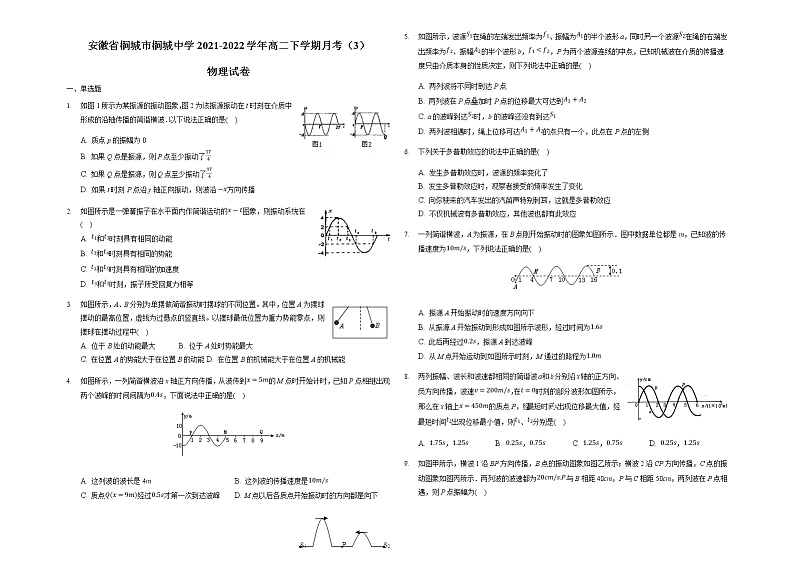 安徽省桐城市桐城中学 2021-2022 学年高二下学期月考（3）
物理试卷
一、单选题
1. 如图 1 所示为某振源的振动图象,图 2 为该振源振动在 t 时刻在介质中
形成的沿轴传播的简谐横波.以下说法正确的是( )
A. 质点 p 的振幅为 0
B. 如果 Q 点是振源，则 P 点至少振动了
C. 如果 Q 点是振源，则 Q 点至少振动了
D. 如果 t 时刻 P 点沿 y 轴正向振动，则波沿 −x 方向传播
图1 图2
2. 如图所示是一弹簧振子在水平面内作简谐运动的x−t图象，则振动系统在
( )
A. 时刻具有相同的动能
B. 时刻具有相同的势能
C. 时刻具有相同的加速度
D. 时刻，振子所受回复力相等
3. 如图所示，A、B 分别为单摆做简谐振动时摆球的不同位置。其中，位置 A 为摆球
摆动的最高位置，虚线为过悬点的竖直线。以摆球最低位置为重力势能零点，则
摆球在摆动过程中( )
A. 位于 B 处的动能最大 B. 位于 A 处时势能最大
C. 在位置 A 的势能大于在位置 B 的动能 D. 在位置 B 的机械能大于在位置 A 的机械能
A B
4. 如图所示，一列简谐横波沿 x 轴正方向传播，从波传到x = 5m的 M 点时开始计时，已知 P 点相继出现
两个波峰的时间间隔为0.4s，下面说法中正确的是( )
A. 这列波的波长是 4m B. 这列波的传播速度是10m/s
C. 质点Q(x = 9m)经过0.5s才第一次到达波峰 D. M 点以后各质点开始振动时的方向都是向下
S₁ P S₂
5. 如图所示，波源S₁在绳的左端发出频率为f₁、振幅为A₁的半个波形 a，同时另一个波源S₂在绳的右端发
出频率为f₂、振幅A₂的半个波形 b，f₁ < f₂，P 为两个波源连线的中点，已知机械波在介质的传播速
度只由介质本身的性质决定，则下列说法中正确的是( )
A. 两列波将不同时到达 P 点
B. 两列波在 P 点叠加时 P 点的位移最大可达到A₁ + A₂
C. a 的波峰到达S₂时，b 的波峰还没有到达S₁
D. 两列波相遇时，绳上位移可达A₁ + A₂的点只有一个，此点在 P 点的左侧
6. 下列关于多普勒效应的说法中正确的是( )
A. 发生多普勒效应时，波源的频率变化了
B. 发生多普勒效应时，观察者接受的频率发生了变化
C. 向你驶来的汽车发出的汽笛声特别刺耳，这就是多普勒效应
D. 不仅机械波有多普勒效应，其他波也都有此效应
7. 一列简谐横波，A 为振源，在 B 点刚开始振动时的图象如图所示．图中数据单位都是 m，已知波的传
播速度为10m/s，下列说法正确的是( )
A. 振源 A 开始振动时的速度方向向下
B. 从振源 A 开始振动到形成如图所示波形，经过时间为1.6s
C. 此后再经过0.2s，振源 A 到达波峰
D. 从 M 点开始运动到如图所示时刻，M 通过的路程为1.0m
8. 两列振幅、波长和波速都相同的简谐波 a 和 b 分别沿 x 轴的正方向、
负方向传播，波速v = 200m/s,在t = 0时刻的部分波形如图所示，
那么在 x 轴上x = 450m的质点 P，经最短时间t₁出现位移最大值，经
最短时间t₂出现位移最小值，则t₁、t₂分别是( )
A. 1.75s，1.25s B. 0.25s，0.75s C. 1.25s，0.75s D. 0.25s，1.25s
9. 如图甲所示，横波 1 沿 BP 方向传播，B 点的振动图象如图乙所示；横波 2 沿 CP 方向传播，C 点的振
动图象如图丙所示．两列波的波速都为20cm/s.P与 B 相距 40cm，P 与 C 相距 50cm，两列波在 P 点相
遇，则 P 点振幅为( )